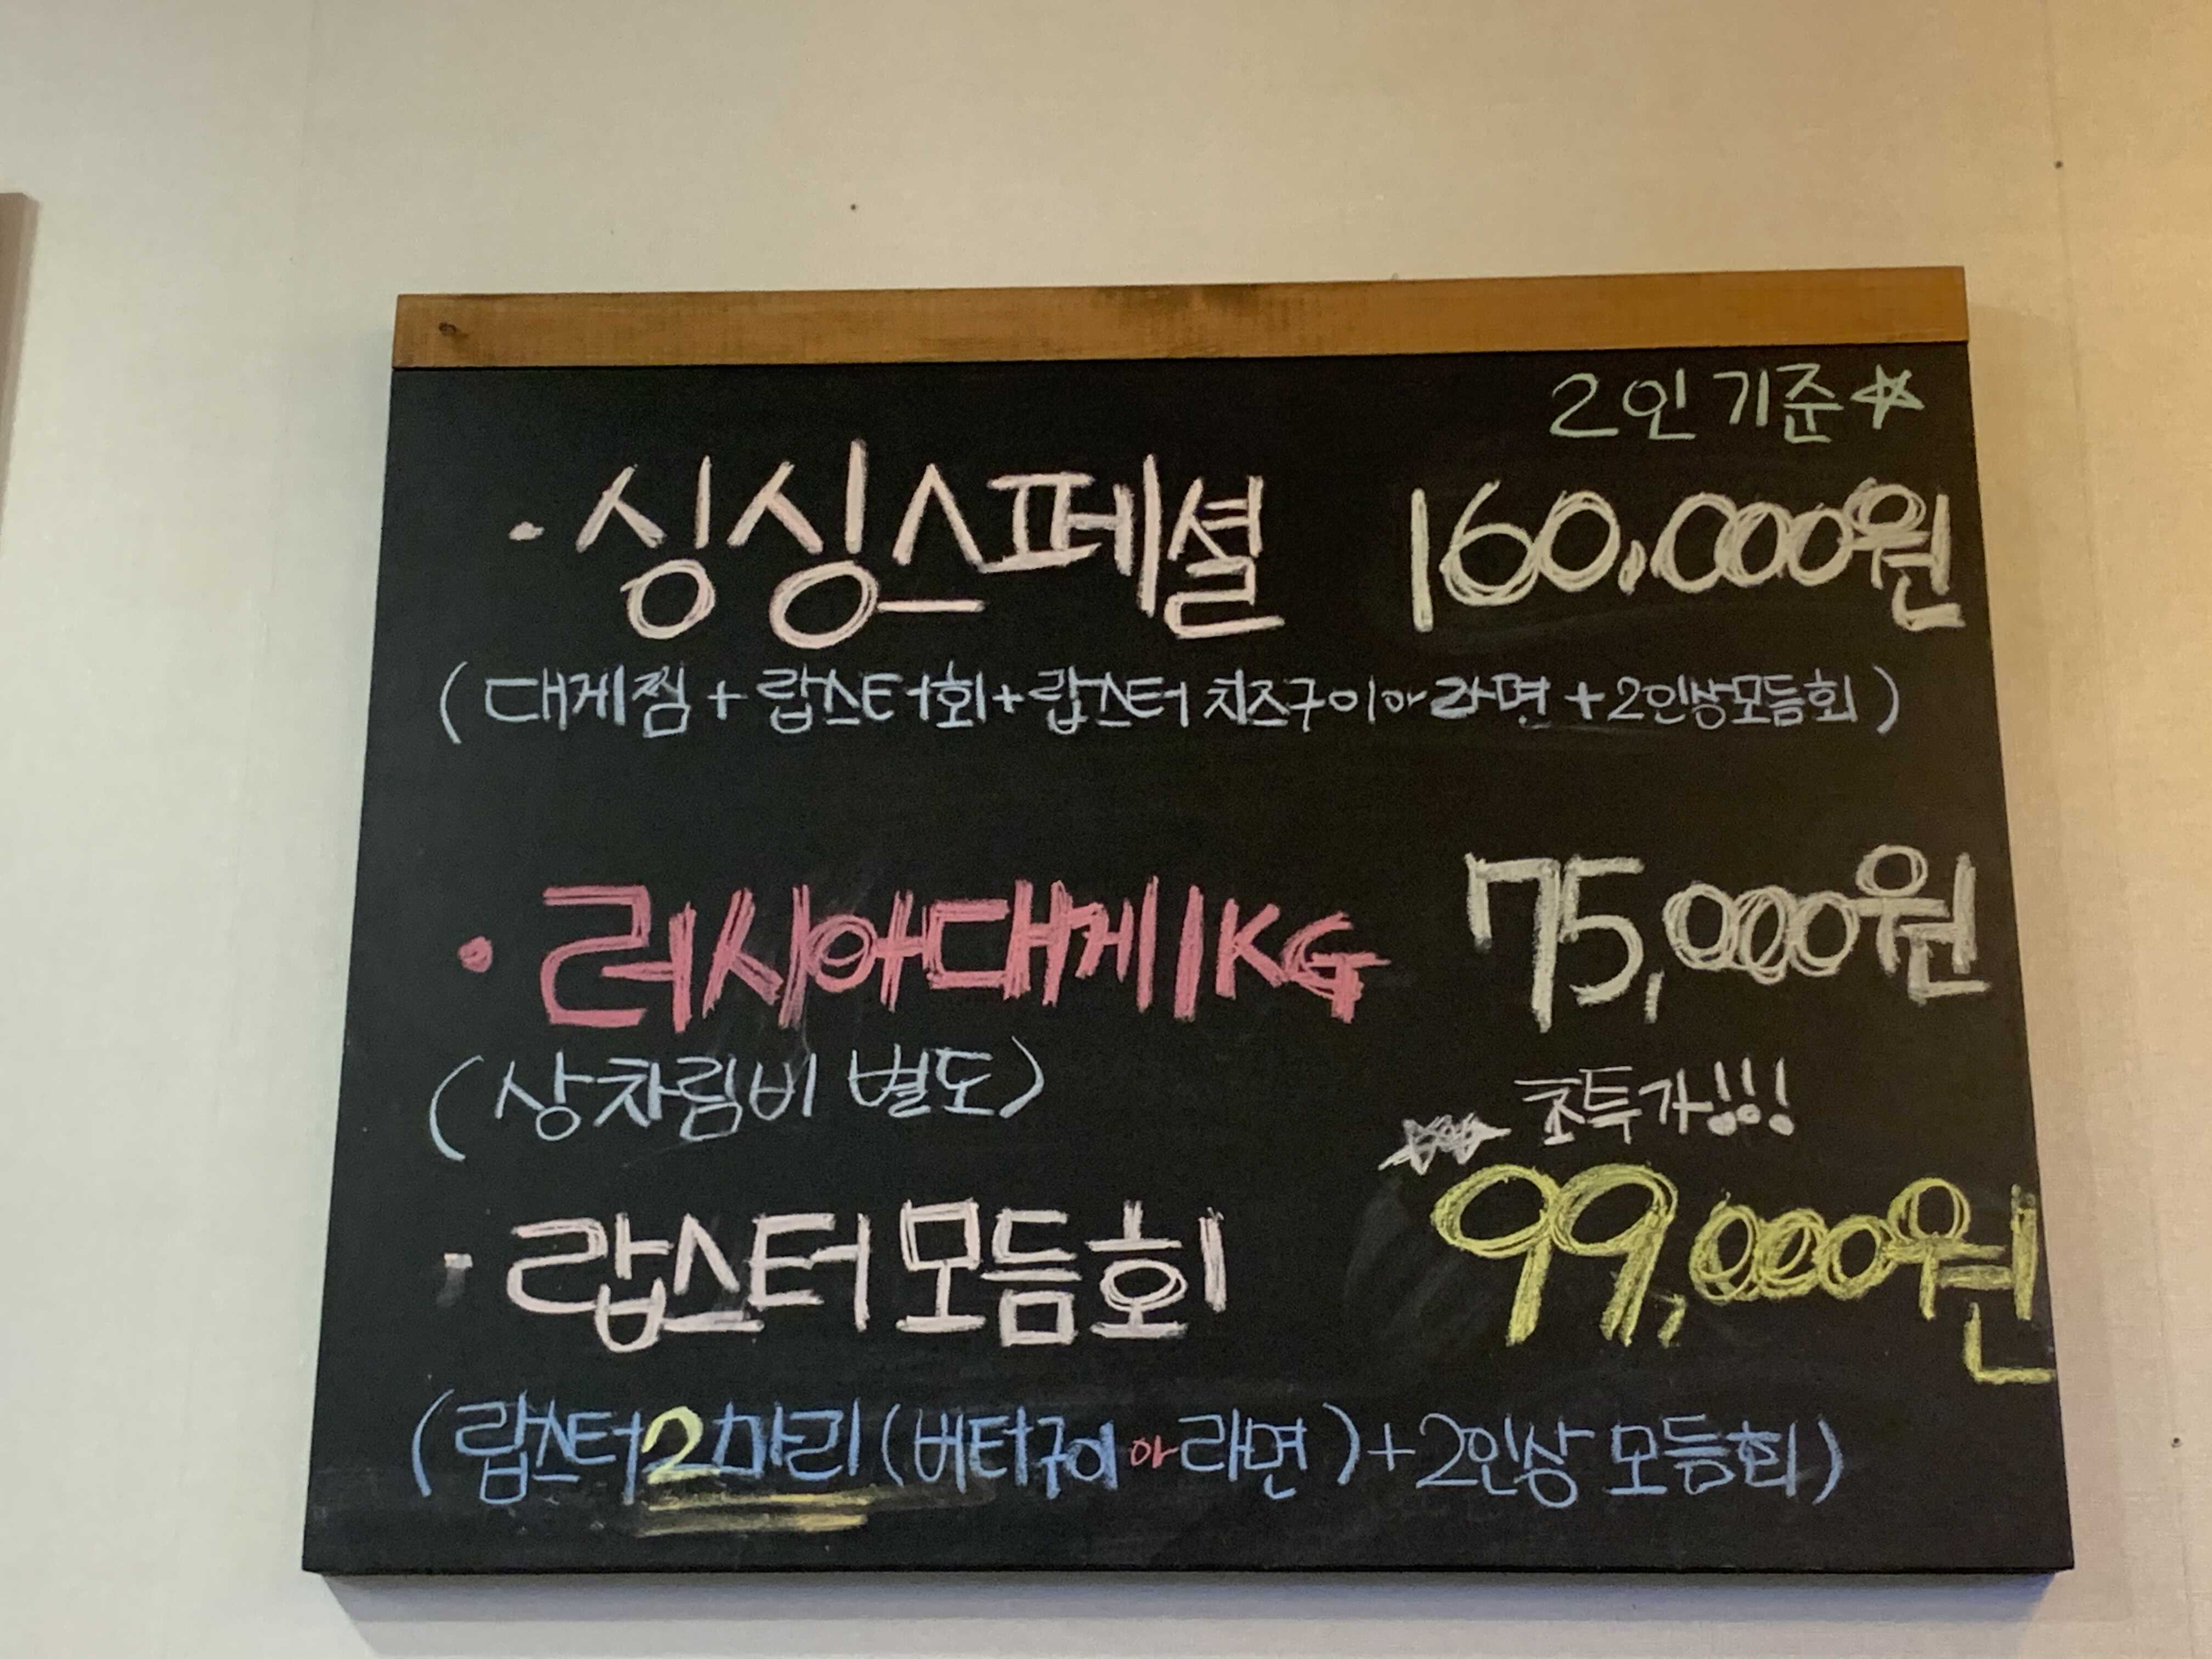 2인 기준☆
·싱싱스페셜 160,000원
(대게찜+랍스터회+랍스터 치즈구이 or 라면 +2인상모듬회)
·러시아대게 1KG 75,000원
(상차림비 별도)
초특가!!!
·랍스터모듬회 99,000원
(랍스터2마리(버터구이 or 라면)+2인상 모듬회)